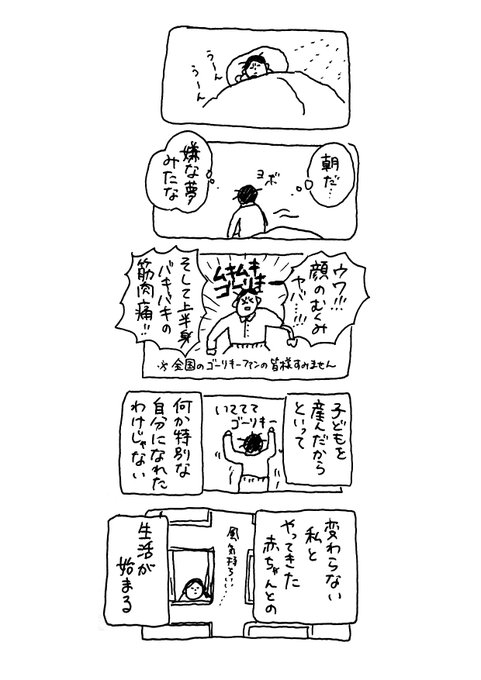 うーん
うーん
朝だ…
ヨボ
嫌な夢
みたな
ウワ!!!
顔のむくみ
ヤバ…!!!
ムキムキ
ゴーリキー
そして上半身
バキバキの
筋肉痛!!
※全国のゴーリキーファンの皆様すみません
子どもを
産んだから
といって
いててて
ゴーリキー
何か特別な
自分になれた
わけじゃない
変わらない
私と
やってきた
赤ちゃんとの
風気持ちい…
生活が
始まる